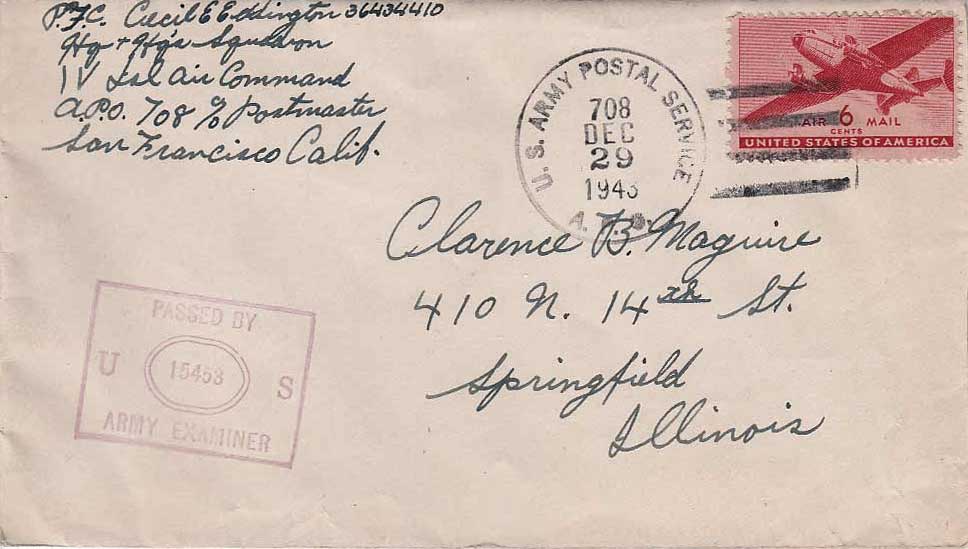 P.F.C. Cecil E Eddington 36434410
Hq + Hqs Squadron
IV Isl Air Command
A.P.O. 708 c/o Postmaster
San Francisco Calif.
U. S. ARMY POSTAL SERVICE
708
DEC
29
1943
A. P. O.
AIR 6 MAIL
CENTS
UNITED STATES OF AMERICA
Clarence B. Maguire
410 N. 14th St.
Springfield
Illinois
PASSED BY
U 15453 S
ARMY EXAMINER